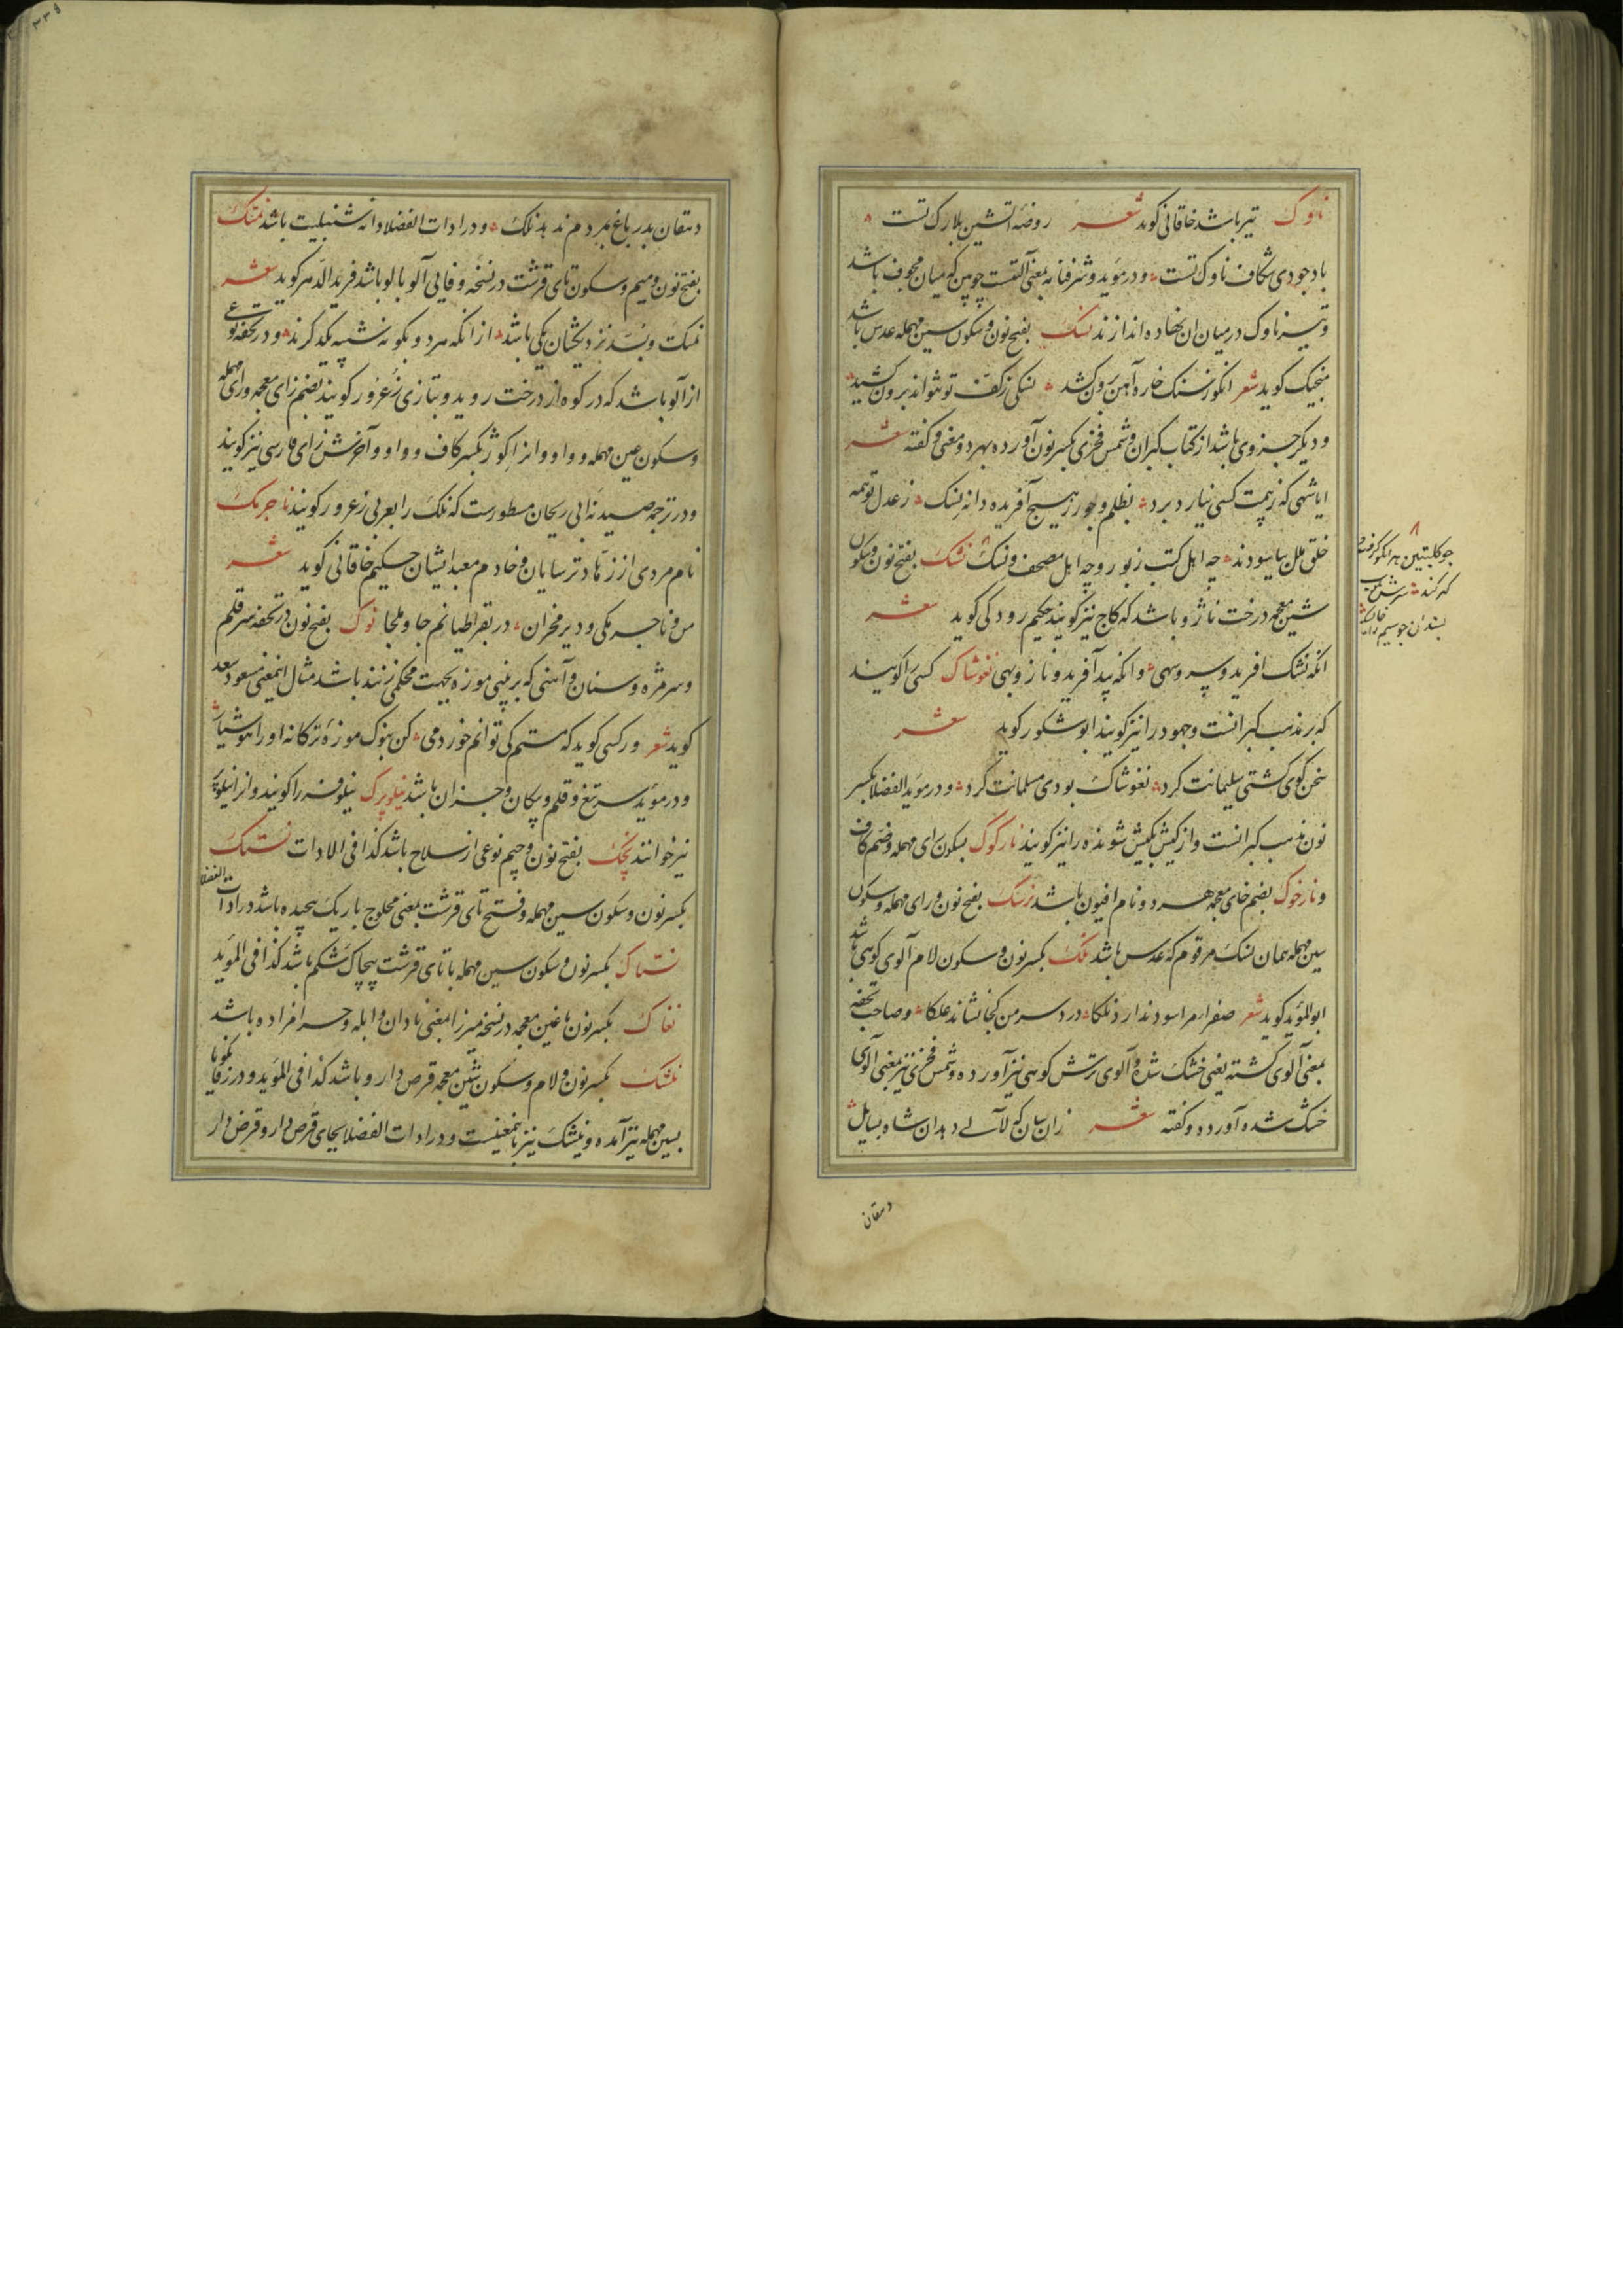 ناوک تیر باشد خاقانی کوید شعر روضه آتشین بلارک تست
باد جودی شکاف ناوک تست و در مؤید و شرفنامه بمعنی آلتست چوبین که میان مجوف باشد
و تیر ناوک در میان ان نهاده اندازند نسک بفتح نون و سکون سین مهمله عدس باشد
منجیک کوید شعر انکو ز سنک خاره آهن برون کشد نسکی ز کف تو نتواند برون کشید
و دیکر جزوی باشد از کتاب کبران و شمس فخری بکسر نون آورده بهر دو معنی و کفته شعر
ایا شهی که ز بیمت کسی نیارد برد بظلم و جور ز هیچ آفریده دانه نسک ز عدل تو همه
خلق ملل بیاسودند چه اهل کتب زبور و چه اهل مصحف و نسک نشک بفتح نون و سکون
شین معجمه درخت ناژو باشد که کاج نیز کویند حکیم رودکی کوید شعر
انکه نشک افرید و سرو سهی و انکه بید آفرید و نار و بهی نغوشاک کسی را کویند
که بر مذهب کبرانست و جهود را نیز کویند ابو شکور کوید شعر
سخن کوی کشتی سلیمانت کرد نغوشاک بودی مسلمانت کرد و در مؤید الفضلا بکسر
نون مذهب کبرانست و از کیش بکیش شونده را نیز کویند نارکوک بسکون رای مهمله و ضم کاف
و نارخوک بضم خای معجمه هر دو نام افیون باشد نرسک بفتح نون و رای مهمله و سکون
سین مهمله همان نسک مرقوم که عدس باشد نلک بکسر نون و سکون لام آلوی کوهی باشد
ابو المؤید کوید شعر صفراء مرا سود ندارد نلکا درد سر من کجا نشاند علکا و صاحب تحفه
بمعنی آلوی کشته یعنی خشک شده و آلوی ترش کوهی نیز آورده و شمس فخری نیز بمعنی آلوی
خشک شده آورده و کفته شعر زان سان که لآلی دهد ان شاه بسایل
دهقان
جو کلبتین هر انکو کرفت
که کند سرش
بسندان جو سیم
دهقان بدر باغ بمردم ندهد نلک و در ادات الفضلا دانه شنبلیت باشد نمتک
بفتح نون و میم و سکون تای قرشت در نسخه وفایی آلوبالو باشد فرید الدهر کوید شعر
نمتک و بسد نزدیکشان یکی باشد از انکه هر دو بکونه شبیه یکدکرند و در تحفه نوعی
از آلو باشد که در کوه از درخت روید و بتازی زعرور کویند بضم زای معجمه و رای مهمله
و سکون عین مهمله و واو و انرا کوژ بکسر کاف و واو و آخرش زای فارسی نیز کویند
و در ترجمه صیدنه ابی ریحان مسطورست که نلک را بعربی زعرور کویند ناجرمک
نام مردی از زهاد ترسایان و خادم معبد ایشان حکیم خاقانی کوید شعر
من و ناجرمکی و دیر مخران در بقراطیانم جا و ملجا نوک بفتح نون در تحفه سر قلم
و سر مژه و سنان و آهنی که بر بینی موزه بجهت محکمی زنند باشد مثال اینمعنی مسعود سعد
کوید شعر ور کسی کوید که مستم کی توانم خورد می کن بنوک موزه ترکانه او را هوشیار
و در مؤید سر تیغ و قلم و پیکان و جز ان باشد نیلوپرک نیلوفر را کویند و انرا نیلوپر
نیز خوانند نجک بفتح نون و جیم نوعی از سلاح باشد کذا فی الادات نستک
بکسر نون و سکون سین مهمله و فتح تای قرشت بمعنی محلوج باریک پیچیده باشد در ادات الفضلا
نستاک بکسر نون و سکون سین مهمله با تای قرشت پیچاک شکم باشد کذا فی المؤید
نغاک بکسر نون با غین معجمه در نسخه میرزا بمعنی نادان و ابله و حرامزاده باشد
نلشک بکسر نون و لام و سکون شین معجمه قرص دارو باشد کذا فی المؤید و در زفانکویا
بسین مهمله نیز آمده و نیشک نیز باینمعنیست و در ادات الفضلا بجای قرص دارو قرض دار